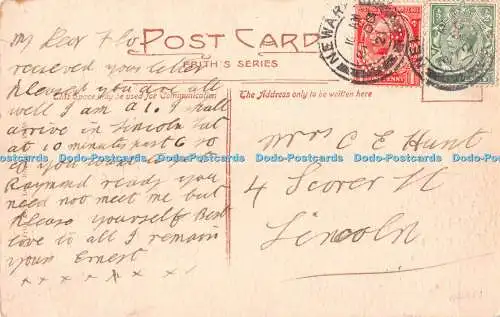 POST CARD
FRITH'S SERIES
This Space may be used for Communication
The Address only to be written here
My Dear Flo
received your letter
pleased you are all
well I am A1. I shall
arrive in Lincoln Sat
at 10 minutes past 6 so
Raymond ready you
need not meet me but
please yourself Best
love to all I remain
yours Ernest
x x x x x x x
Mrs C E Hunt
4 Scorer St
Lincoln
NEWARK
Dodo-Postcards Dodo-Postcards Dodo-Postcards Dodo-Postcards